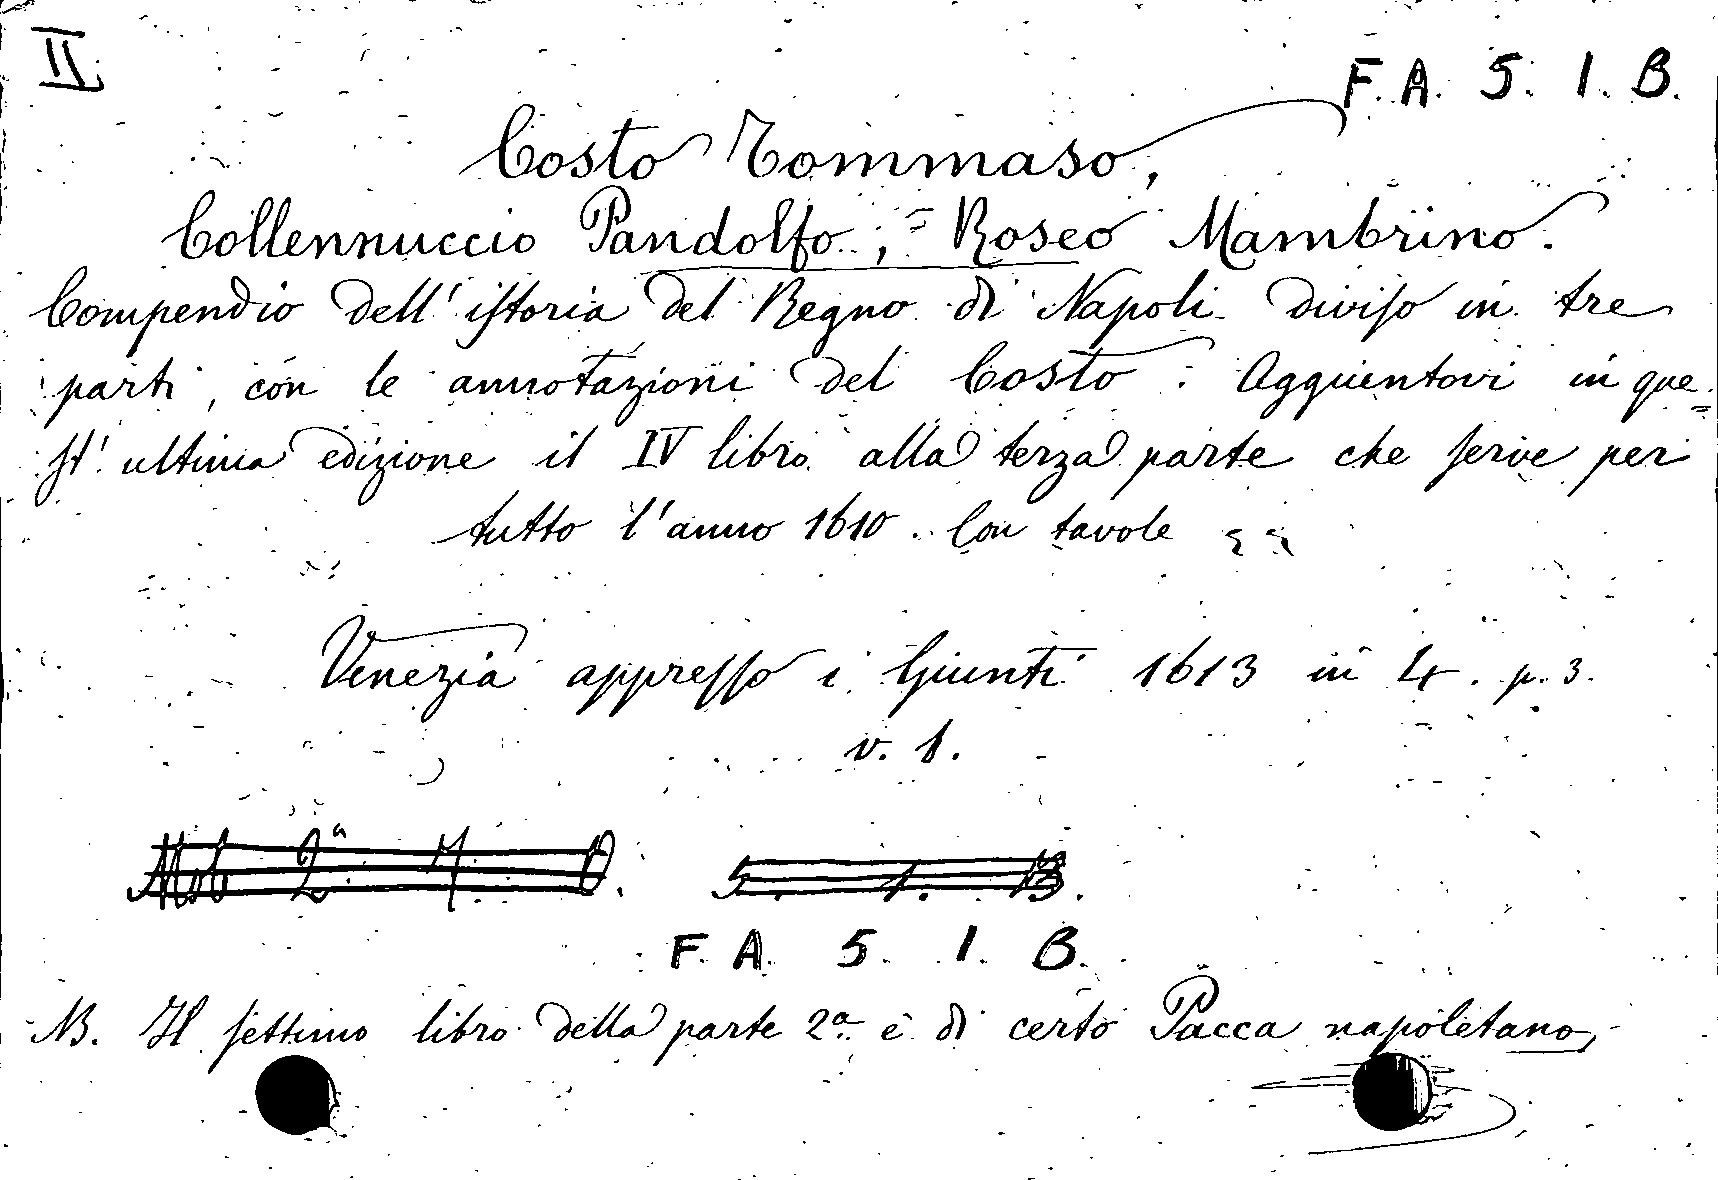 II.
F. A. 5. 1. B.
Costo Tommaso,
Collennuccio Pandolfo, = Roseo Mambrino.
Compendio dell' istoria del Regno di Napoli diviso in tre
parti, con le annotazioni del Costo. Aggiuentovi in que=
st' ultima edizione il IV libro alla terza parte che serve per
tutto l'anno 1610. Con tavole
Venezia appresso i Giunti 1613 in 4. p. 3.
v. 1.
Mob 2ª 7 O. 5. 1. B.
F. A. 5. 1. B.
NB. Il settimo libro della parte 2ª è di certo Pacca napoletano,